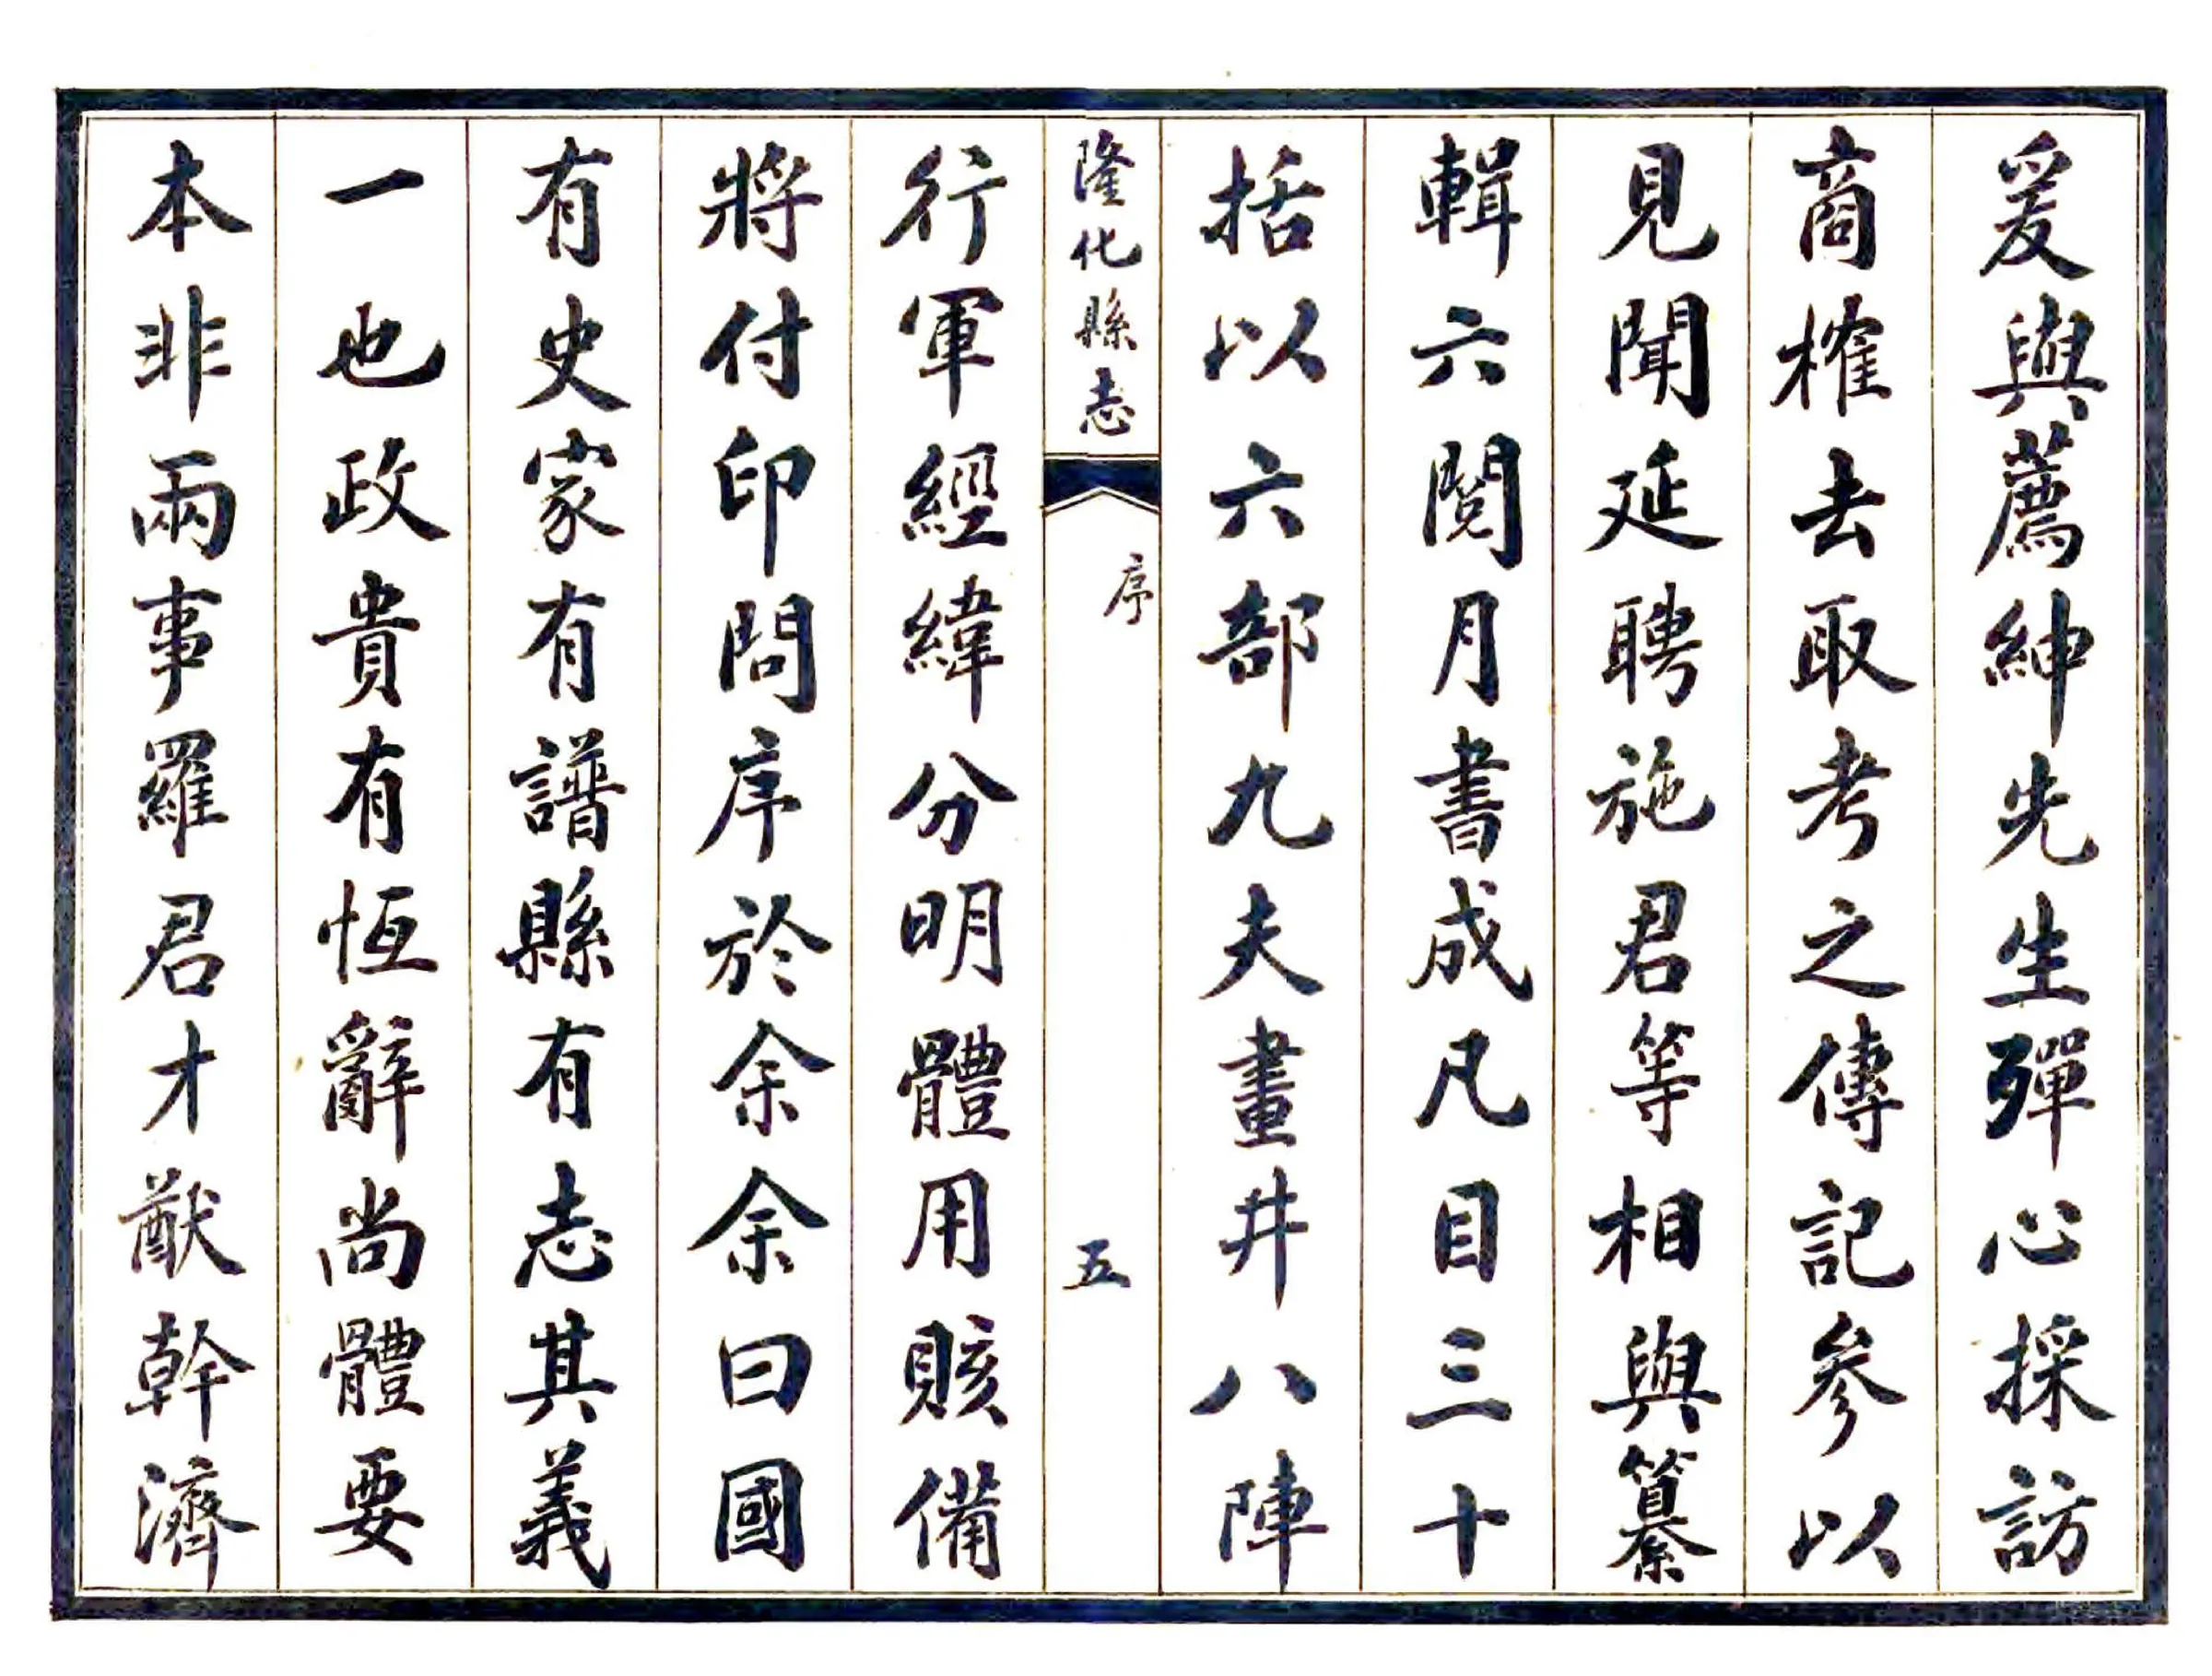 爰與薦紳先生殫心採訪
商榷去取考之傳記參以
見聞延聘施君等相與纂
輯六閱月書成凡目三十
括以六部九夫畫井八陣
隆化縣志
序
五
行軍經緯分明體用賅備
將付印問序於余余曰國
有史家有譜縣有志其義
一也政貴有恆辭尚體要
本非兩事羅君才猷幹濟